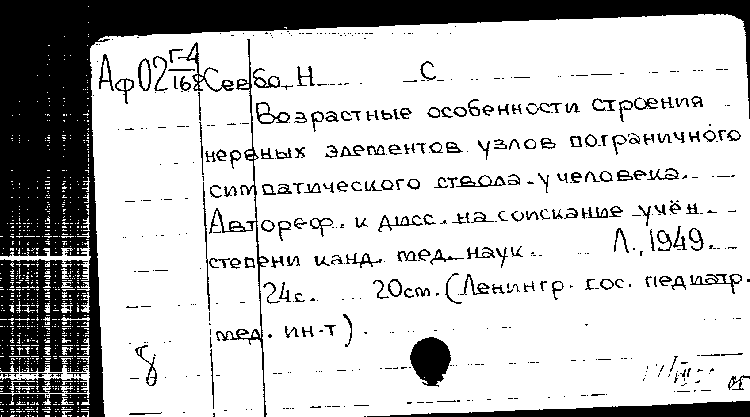 Аф02 Г-4/168 Севбо, Н. С
Возрастные особенности строения
нервных элементов узлов пограничного
симпатического ствола у человека.
Автореф. к дисс. на соискание учён.
степени канд. мед. наук. Л., 1949.
24с. 20см. (Ленингр. гос. педиатр.
мед. ин-т).
8